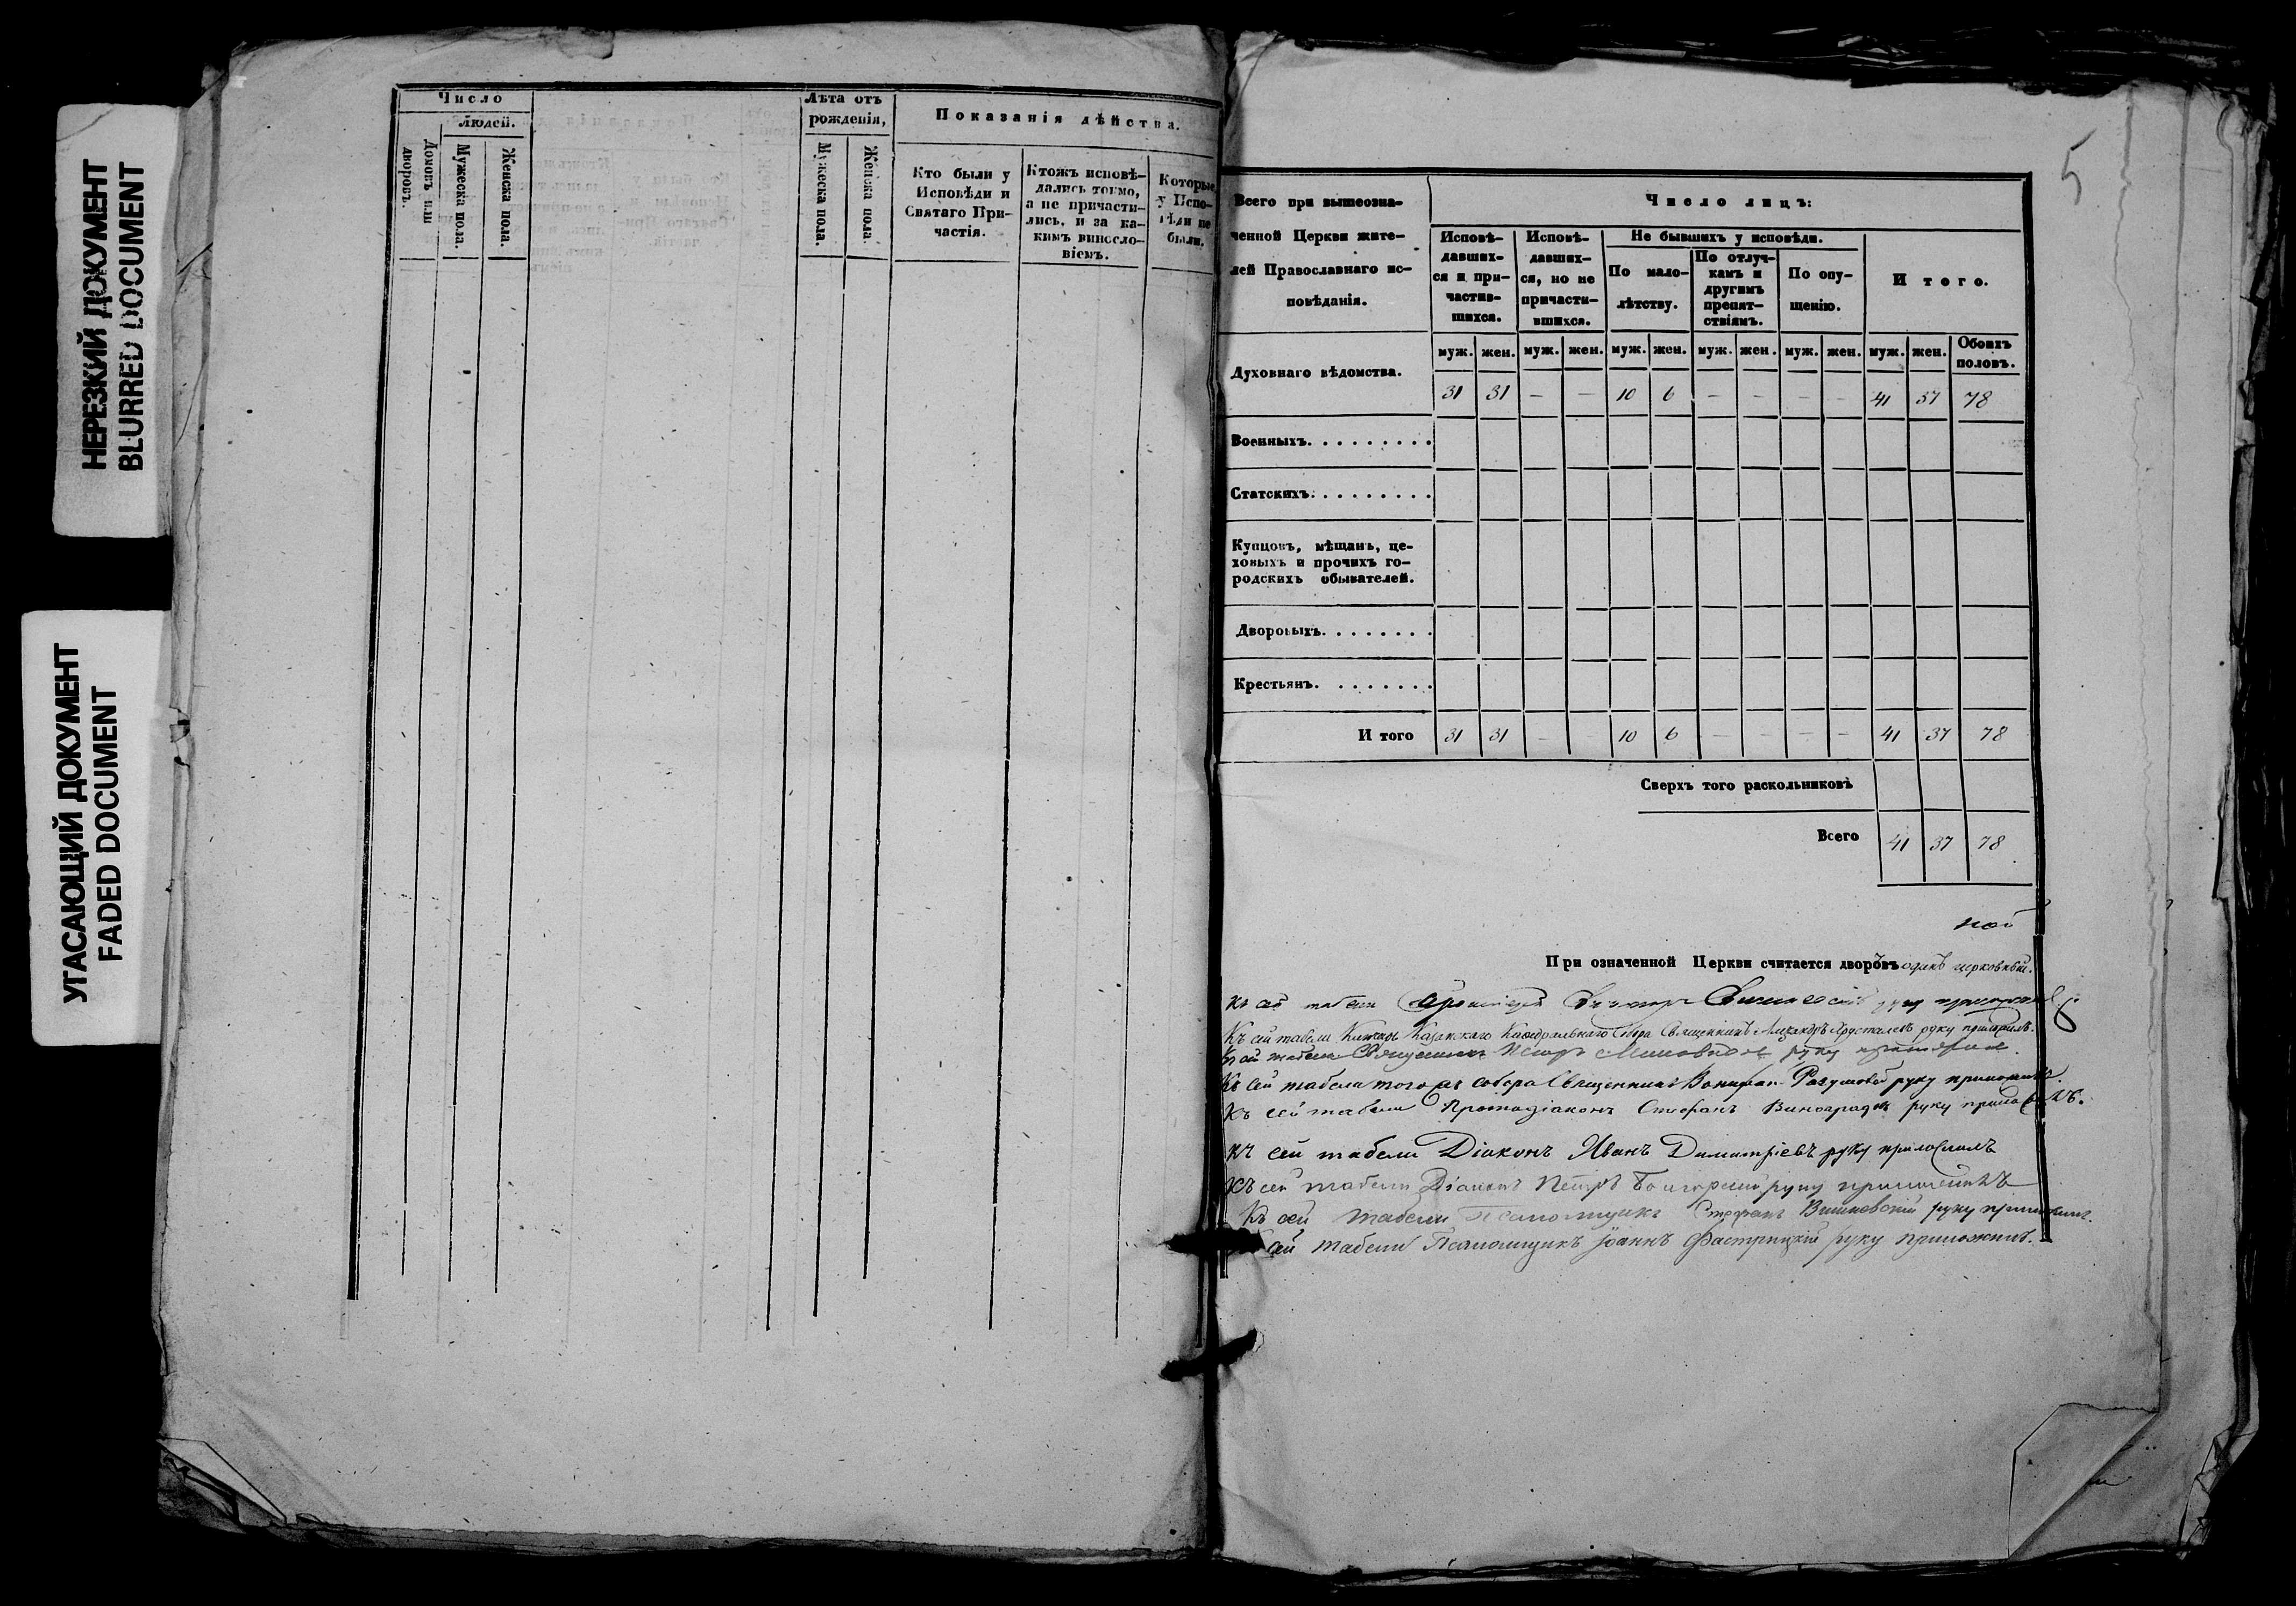 НЕРЕЗКИЙ ДОКУМЕНТ
BLURRED DOCUMENT
УГАСАЮЩИЙ ДОКУМЕНТ
FADED DOCUMENT
Число
людей.
Домовъ или
дворовъ.
Мужеска пола.
Женска пола.
Лѣта отъ
рожденія,
Мужеска пола.
Женска пола.
Показанія дѣйства.
Кто были у
Исповѣди и
Святаго При-
частія.
Ктожъ исповѣ-
дались токмо,
а не причасти-
лись, и за ка-
кимъ винсло-
віемъ.
Которые
у Испо-
вѣди не
были.
5
Всего при вышеозна-
ченной Церкви жите-
лей Православнаго ис-
повѣданія.
Число лицъ:
Исповѣ-
давших-
ся и при-
частив-
шихся.
Исповѣ-
давших-
ся, но не
причасти-
вшихся.
Не бывшихъ у исповѣди.
По мало-
лѣтству.
По отлуч-
камъ и
другимъ
препят-
ствіямъ.
По опу-
щенію.
И того.
муж. жен. муж. жен. муж. жен. муж. жен. муж. жен. муж. жен. Обоихъ
половъ.
Духовнаго вѣдомства.
31 31 — — 10 6 — — — — 41 37 78
Военныхъ.
Статскихъ.
Купцовъ, мѣщанъ, це-
ховыхъ и прочихъ го-
родскихъ обывателей.
Дворовыхъ.
Крестьянъ.
И того 31 31 — — 10 6 — — — — 41 37 78
Сверхъ того раскольниковъ
Всего 41 37 78
ной
При означенной Церкви считается дворовъ одинъ церковный.
Къ сей табели Протоіерей руку приложилъ
Къ сей табели Казанскаго Каѳедральнаго Собора Священникъ руку приложилъ.
Къ сей табели Священникъ руку приложилъ.
Къ сей табели того жъ собора Священникъ Разумовъ руку приложилъ.
Къ сей табели Протодіаконъ Стефанъ Виноградовъ руку приложилъ.
Къ сей табели Діаконъ Иванъ Димитріевъ руку приложилъ
Къ сей табели Діаконъ Петръ руку приложилъ
Къ сей табели Псаломщикъ Стефанъ Вишневскій руку приложилъ.
сей табели Псаломщикъ Іоаннъ руку приложилъ.